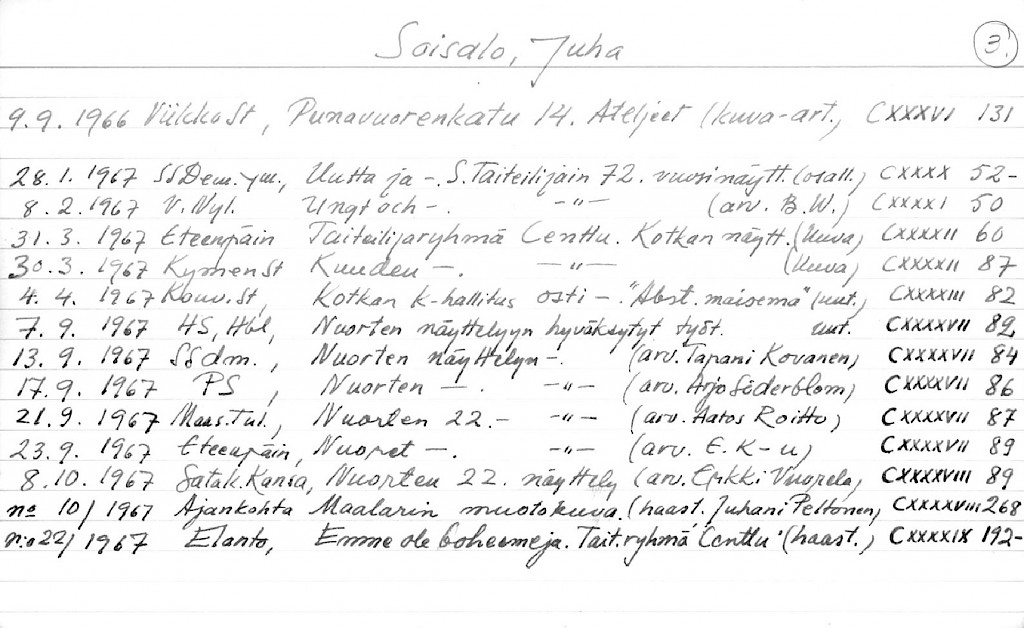 Soisalo, Juha 3.
9.9. 1966 ViikkoSt, Punavuorenkatu 14. Ateljeet (kuva-art.) CXXXVI 131
28.1. 1967 SSDem. ym., Uutta ja -. S. Taiteilijain 72. vuosinäytt. (osall.) CXXXX 52-
8.2. 1967 V. Nyl. Ungt och -. -"- (arv. B.W.) CXXXXI 50
31.3. 1967 Eteenpäin Taiteilijaryhmä Centtu. Kotkan näytt. (kuva) CXXXXII 60
30.3. 1967 KymenSt Kuuden -. -"- (kuva) CXXXXII 87
4.4. 1967 Kouv.St, Kotkan k-hallitus osti -. "Abst. maisema" (uut.) CXXXXIII 82
7.9. 1967 HS, Hbl, Nuorten näyttelyyn hyväksytyt työt. uut. CXXXXVII 82
13.9. 1967 SSdm., Nuorten näyttelyn -. (arv. Tapani Kovanen) CXXXXVII 84
17.9. 1967 PS, Nuorten -. -"- (arv. Arjo Söderblom) CXXXXVII 86
21.9. 1967 Maas.Tul., Nuorten 22.- -"- (arv. Aatos Roitto) CXXXXVII 87
23.9. 1967 Eteenpäin, Nuoret -. -"- (arv. E. K-u) CXXXXVII 89
8.10. 1967 Satak.Kansa, Nuorten 22. näyttely (arv. Erkki Vuorela) CXXXXVIII 89
no 10/1967 Ajankohta Maalarin muotokuva. (haast. Juhani Peltonen) CXXXXVIII 268
n:o 22/1967 Elanto, Emme ole boheemeja. Tait.ryhmä Centtu (haast.) CXXXXIX 192-